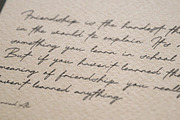 Friendship is the hardest th
in the world to explain. It's
something you learn in school
But if you haven't learned the
meaning of friendship you really
haven't learned anything